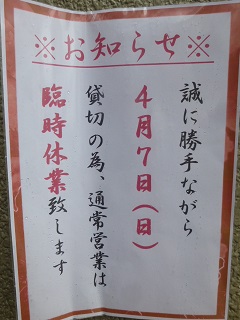 ※お知らせ※
誠に勝手ながら
4月7日(日)
貸切の為、通常営業は
臨時休業致します